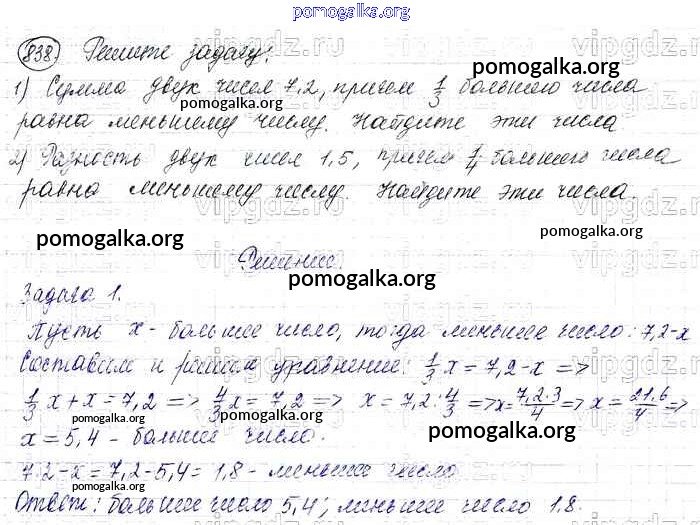 pomogalka.org
838) Решите задачу:
1) Сумма двух чисел 7,2, причем 1/3 большего числа
равна меньшему числу. Найдите эти числа
2) Разность двух чисел 1,5, причем 1/4 большего числа
равна меньшему числу. Найдите эти числа.
pomogalka.org
Решение.
pomogalka.org
Задача 1.
Пусть x - большее число, тогда меньшее число: 7,2-x
Составим и решим уравнение: 1/3 x = 7,2-x =>
1/3 x + x = 7,2 => 4/3 x = 7,2 => x = 7,2 : 4/3 => x = 7,2·3/4 => x = 21,6/4 =>
x = 5,4 - большее число.
7,2-x = 7,2-5,4 = 1,8 - меньшее число
Ответ: большее число 5,4; меньшее число 1,8.